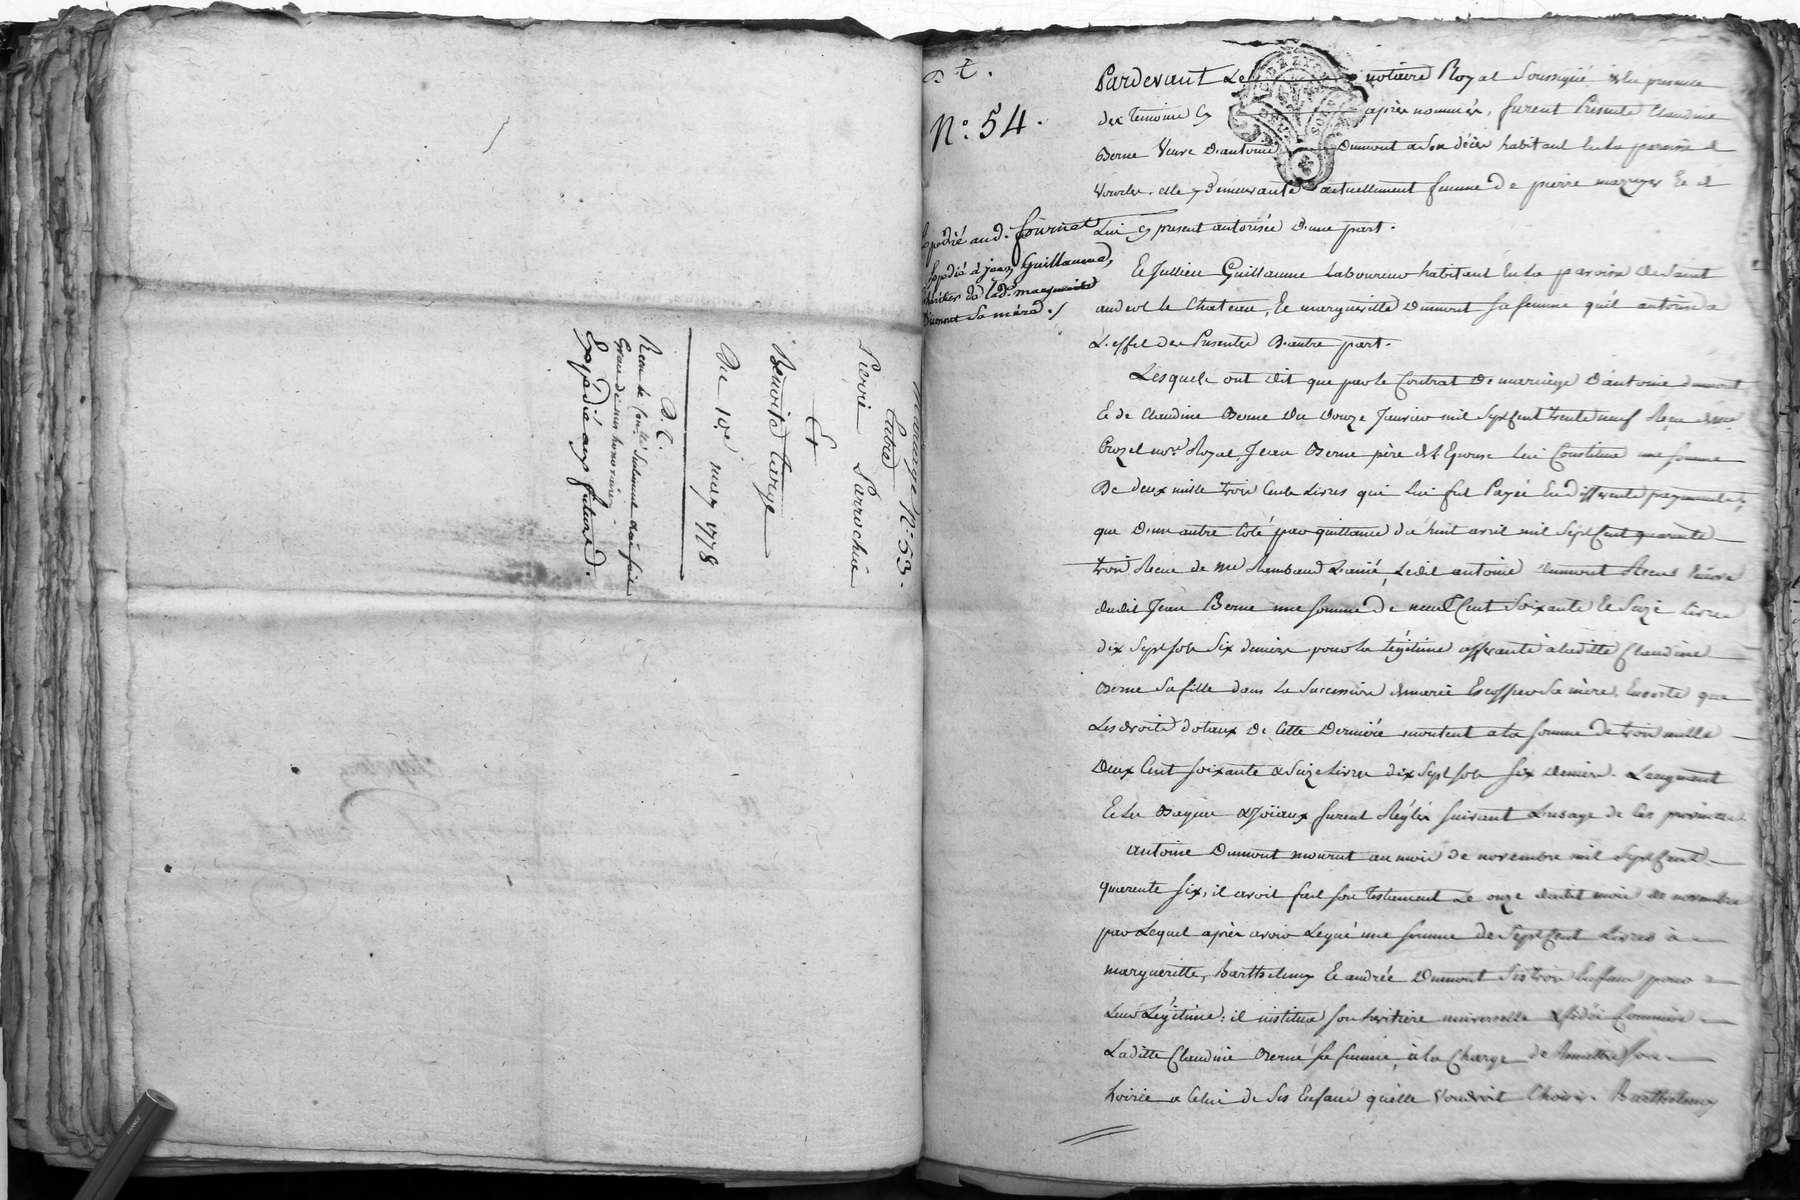 Mariage N.° 53.
Entre
Pierre Parrochia
Et
Benoite Targe
Du 10e may 1778
D. C.
Expédié aux futurs.
D t.
N.° 54.
Expédié aud. fournet
Expédié à jean Guillaume,
héritier de lad.e marguerite
Dumont sa mère ./
Pardevant Le notaire Royal Soussigné & en presence
des temoins cy après nommés, furent Présents Claudine
Berne Veuve D'antoine Dumont a son décès habitant en la paroisse de
elle y demeurante actuellement femme de pierre mazuyer Et de
Lui cy present autorisée D'une part.
Et Jullien Guillaume Laboureur habitant en la paroisse de Saint
andeol le Chateau, Et margueritte Dumont sa femme qu'il autorise a
L'effet des Presentes D'autre part.
Lesquels ont dit que par le Contrat De mariage D'antoine dumont
Et de Claudine Berne Du Douze Janvier mil Sept Cent trente neuf Reçu de me
Crozet nore Royal, Jean Berne père de l'Epouse Lui Constitua une somme
De deux mille trois Cents Livres qui lui fut Payée en differents payements;
que D'une autre Coté par quittance du huit avril mil Sept Cent quarante
trois Recue de me Rambaud L'ainé, Ledit antoine dumont Recut Encore
dudit Jean Berne une somme De neuf Cent Soixante Et Seize Livres
dix Sept sols Six deniers pour la Légitime afferante à laditte Claudine
Berne Sa fille dans La Succession de marie Escoffier Sa mère, Ensorte que
Les droits dotaux De Cette Derniére montent a la somme De trois mille
Deux Cent soixante & Seize Livres dix Sept sols Six deniers. L'augment
Et les Bagues & Joïaux furent Réglés suivant L'usage de Ces provinces
antoine Dumont mourut au mois de novembre mil Sept Cent
quarente Six, il avoit fait son testament Le onze dudit mois de novembre
par Lequel après avoir Legué une somme de Sept Cent Livres à
margueritte, Barthelemy Et andrée Dumont Ses trois Enfans pour
Leur Légitime: il institua son héritière universelle & fidéi Commisse
Laditte Claudine Berne sa femme, à la Charge de Remettre son
hoirie a Celui de Ses Enfans qu'elle Voudroit Choisir. Barthelemy